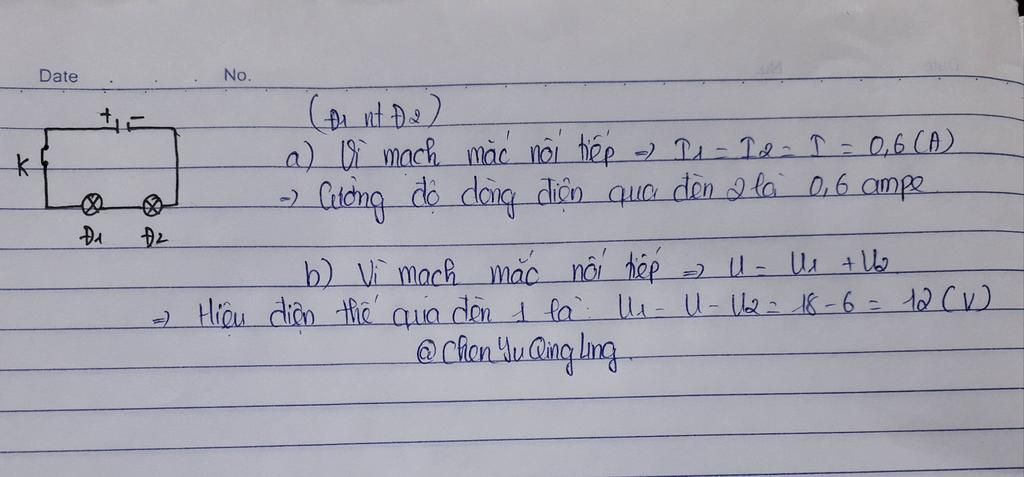 Date . . . No.
(Đ1 nt Đ2)
+ -
K
Đ1 Đ2
a) Vì mạch mắc nối tiếp => I1 = I2 = I = 0,6 (A)
=> Cường độ dòng điện qua đèn 2 là 0,6 ampe
b) Vì mạch mắc nối tiếp => U = U1 + U2
=> Hiệu điện thế qua đèn 1 là: U1 = U - U2 = 18 - 6 = 12 (V)
@ChenYuQingLing.